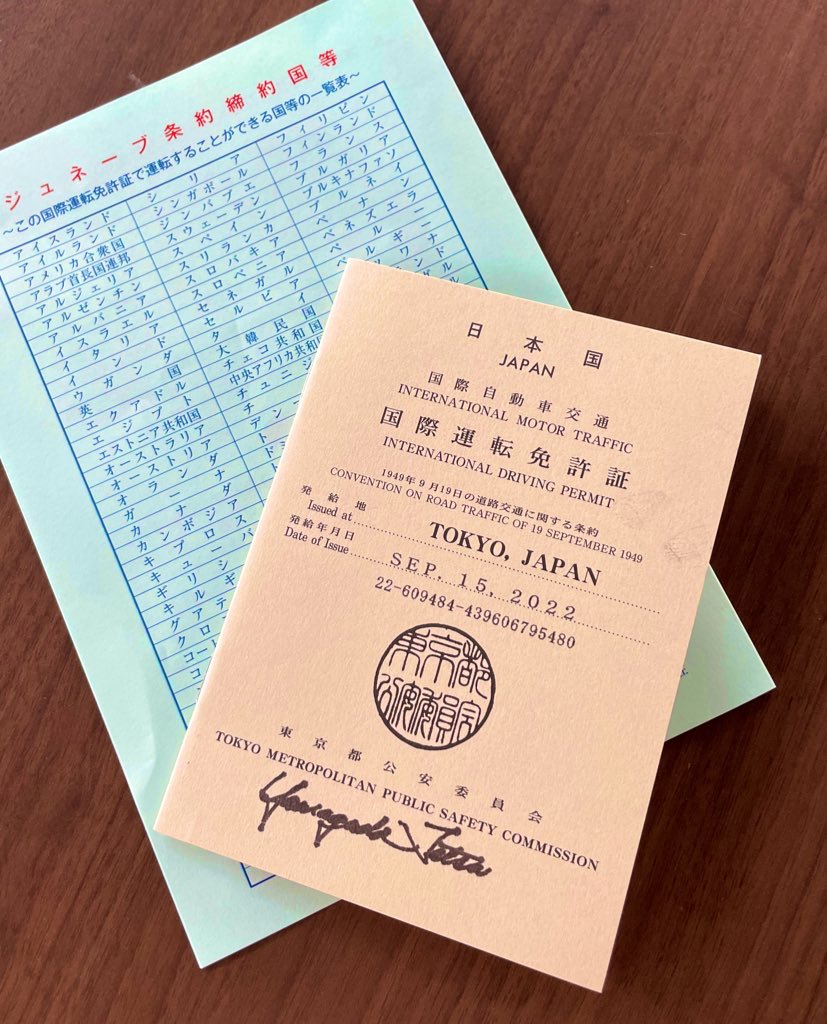 ジュネーブ条約締約国等
~この国際運転免許証で運転することができる国等の一覧表~
アイスランド
アイルランド
アメリカ合衆国
アラブ首長国連邦
アルジェリア
アルゼンチン
アルバニア
イスラエル
イタリア
インド
ウガンダ
英国
エクアドル
エジプト
エストニア共和国
オーストラリア
オーストリア
オランダ
ガーナ
カナダ
カンボジア
キプロス
キューバ
ギリシ
キルギ
グアテ
クロ
コー
シリア
シンガポール
ジンバブエ
スウェーデン
スペイン
スリランカ
スロバキア
スロベニア
セネガル
セルビア
タイ
大韓民国
チェコ共和国
中央アフリカ共和国
チュニジ
デン
ド
ドミ
フィリピン
フィンランド
フランス
ブルガリア
ブルキナファソ
ブルネイ
ベナン
ベネズエラ
ペルー
ベルギー
ワナ
日本国
JAPAN
国際自動車交通
INTERNATIONAL MOTOR TRAFFIC
国際運転免許証
INTERNATIONAL DRIVING PERMIT
1949年9月19日の道路交通に関する条約
CONVENTION ON ROAD TRAFFIC OF 19 SEPTEMBER 1949
発給地
Issued at TOKYO, JAPAN
発給年月日
Date of Issue SEP. 15, 2022
22-609484-439606795480
東京都
公安委員会
東京都公安委員会
TOKYO METROPOLITAN PUBLIC SAFETY COMMISSION